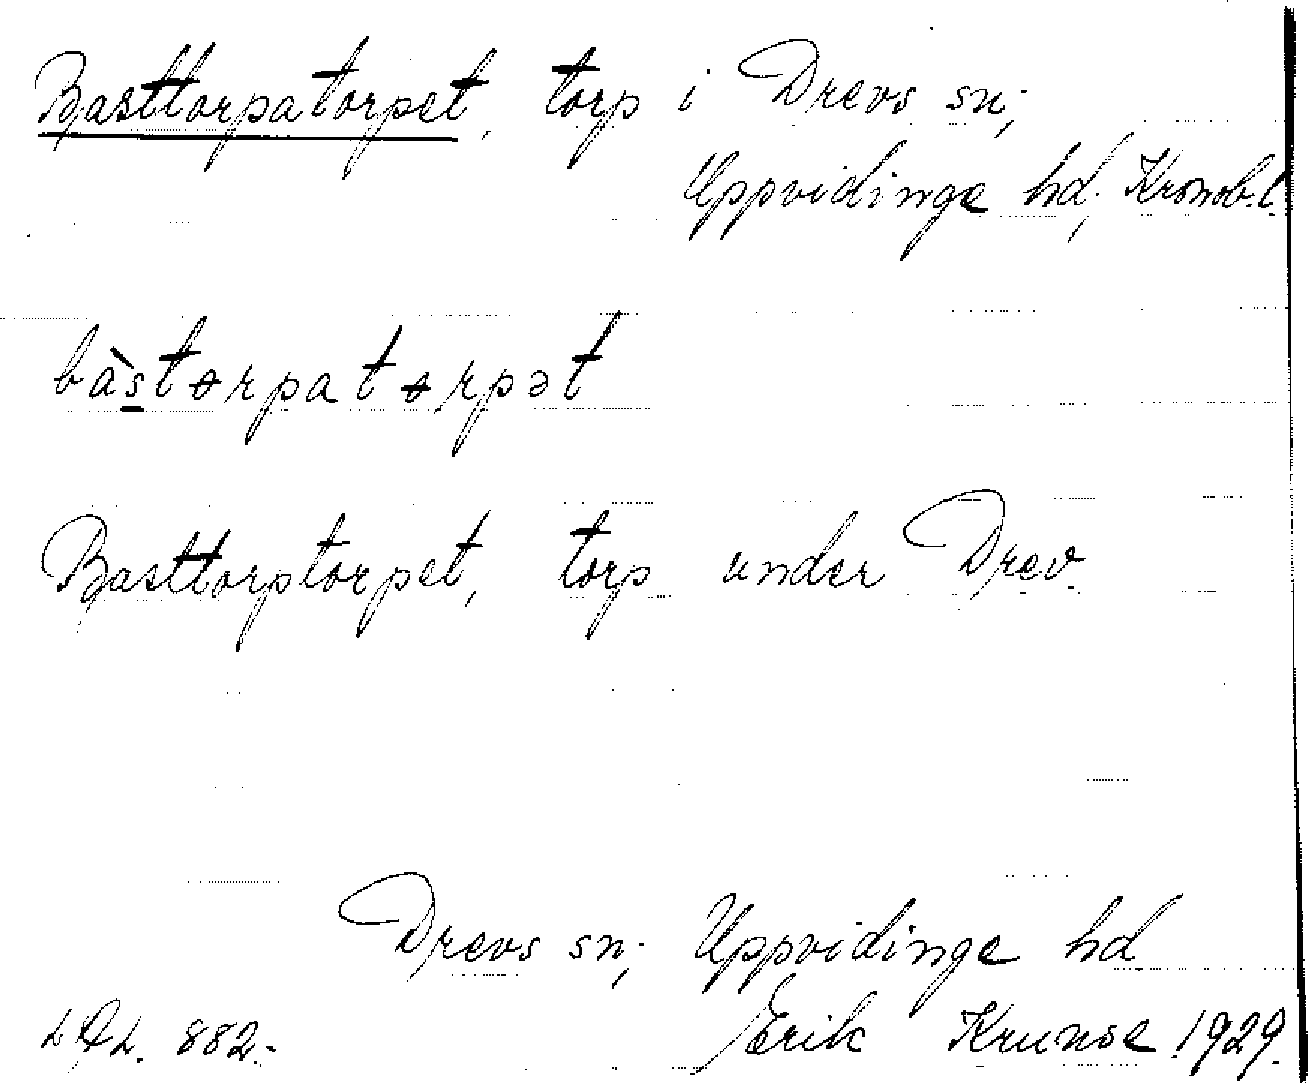 Basttorpatorpet, torp i Drevs sn;
Uppvidinge hd; Kronob.l.
bàs̲tɵrpatɵrpət
Basttorptorpet, torp under Drev.
Drevs sn; Uppvidinge hd
882.- Erik Krunse 1929.